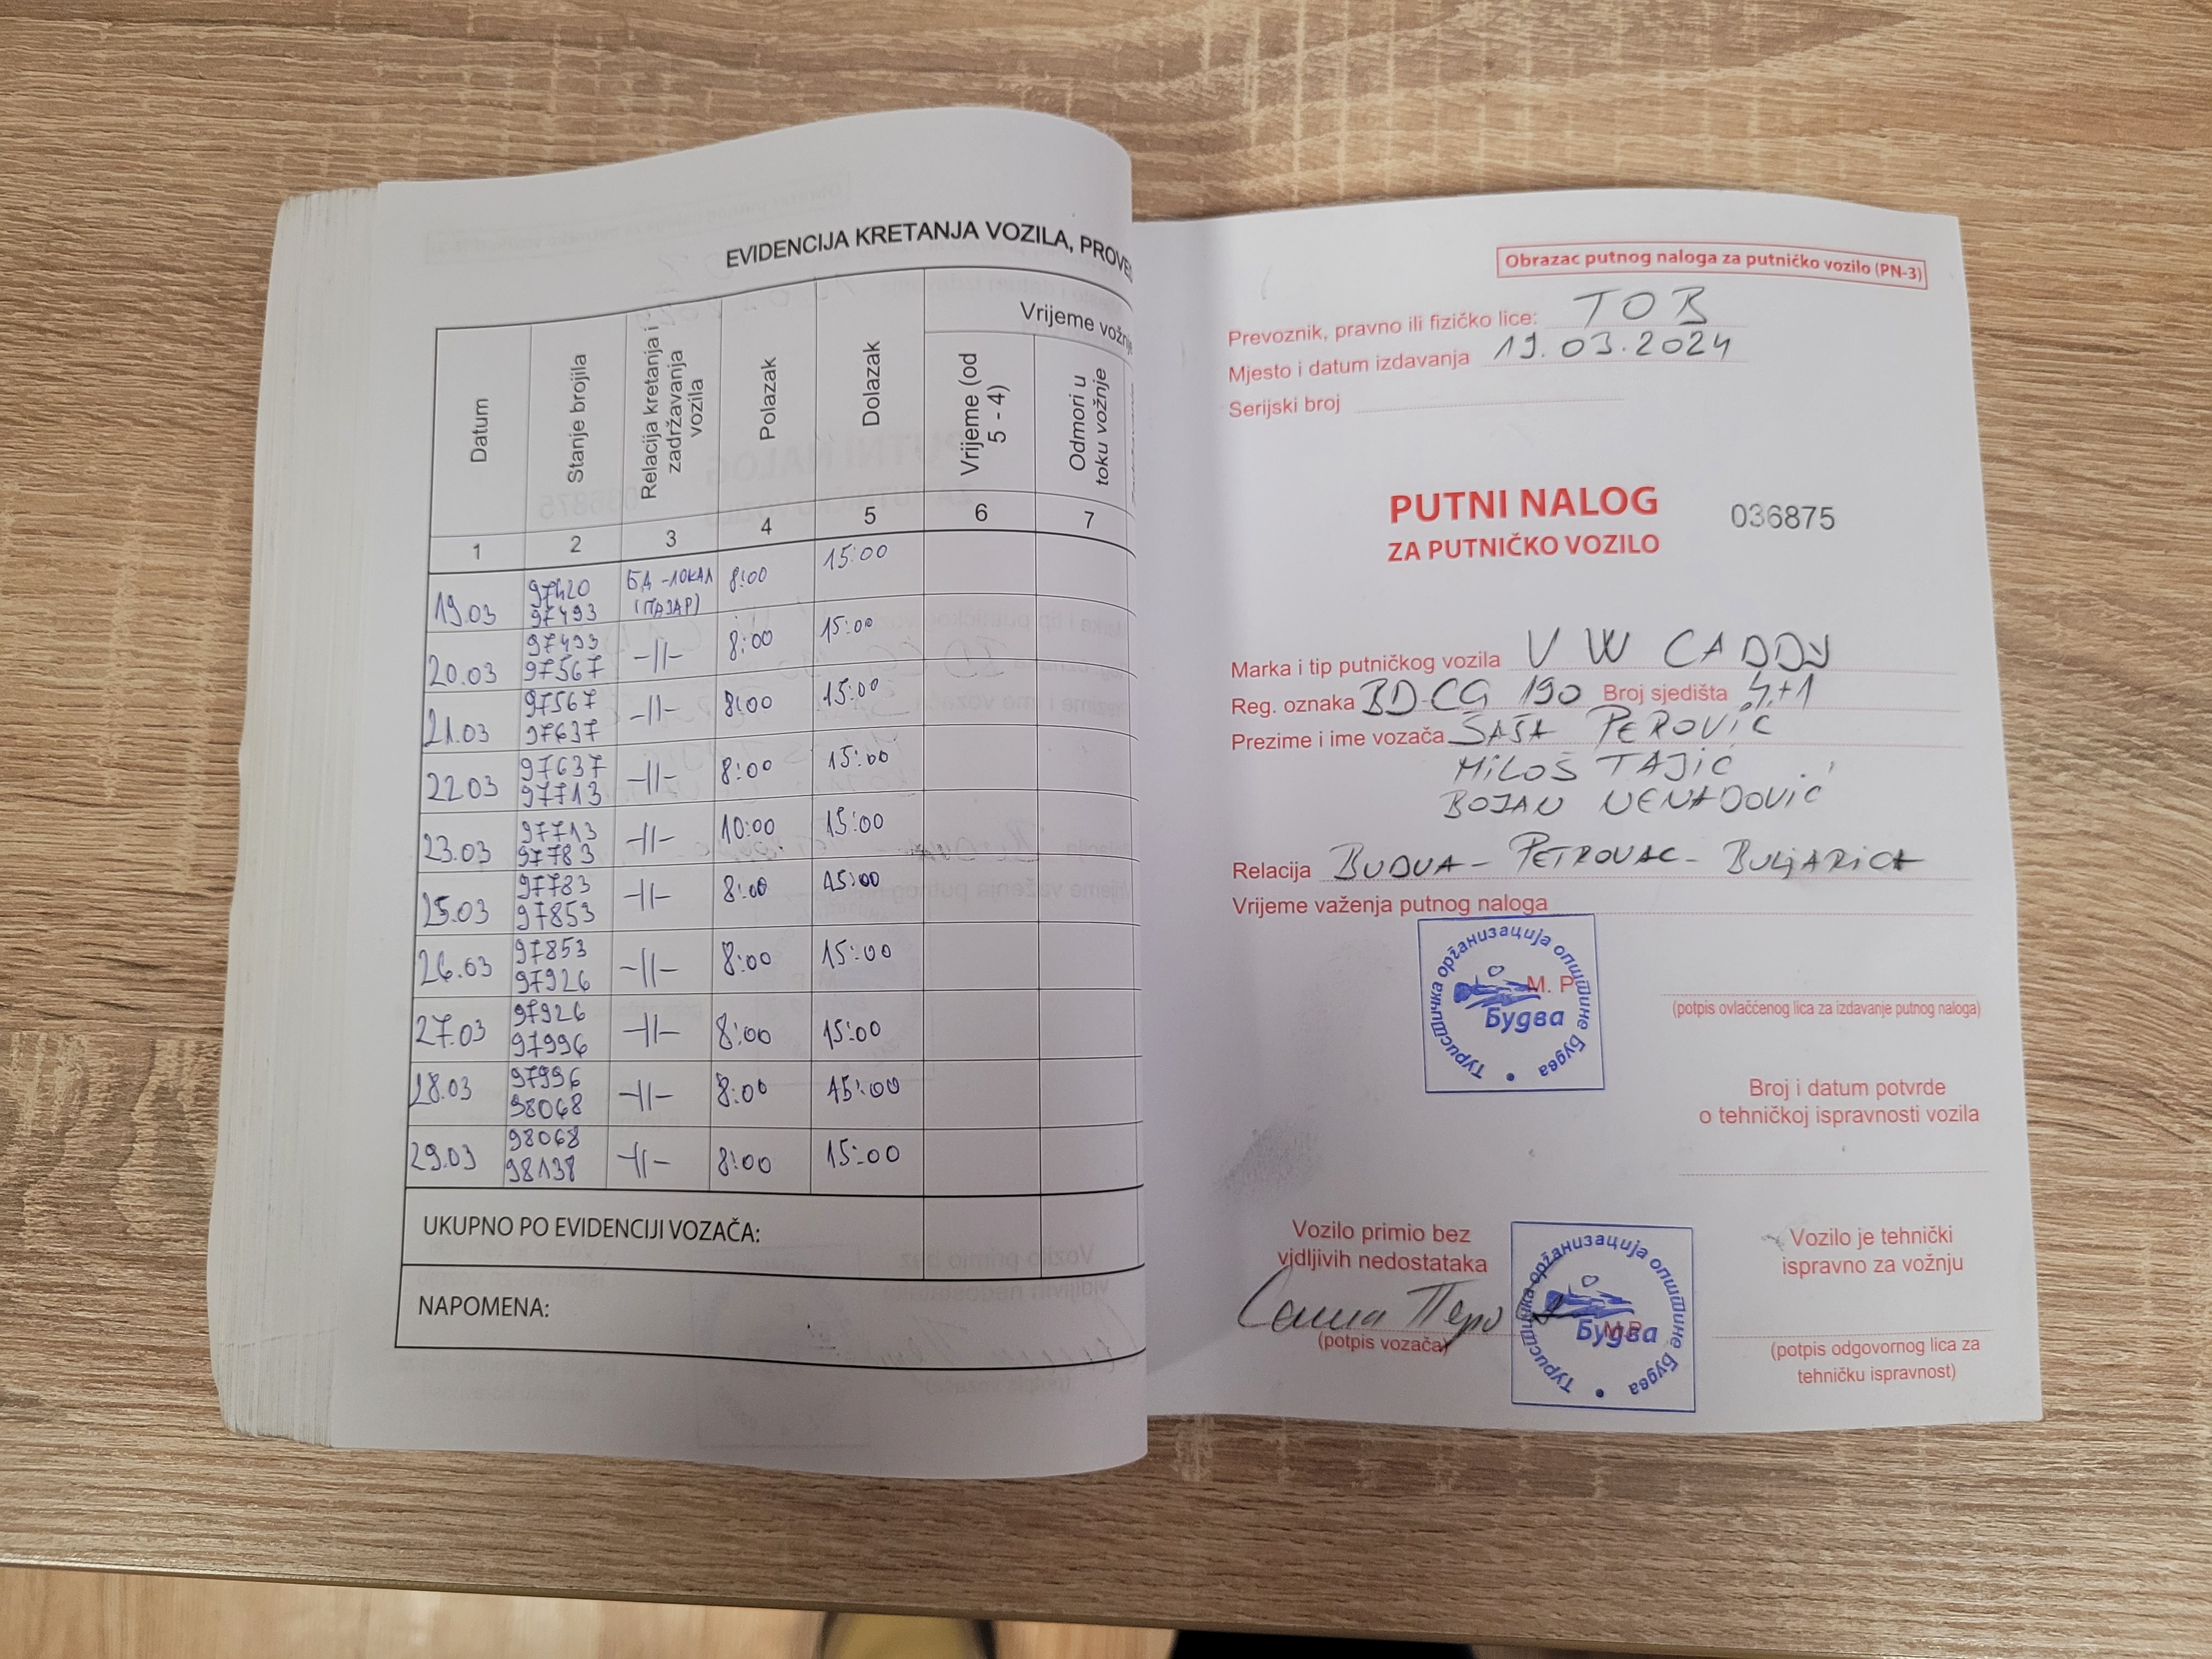 EVIDENCIJA KRETANJA VOZILA, PROVE
Datum
Stanje brojila
Relacija kretanja i
zadržavanja
vozila
Polazak
Dolazak
Vrijeme vožnje
Vrijeme (od
5 - 4)
Odmori u
toku vožnje
1 2 3 4 5 6 7
19.03 97420 БД -ЛОКАЛ 8:00 15:00
97493 (ПАЗАР)
20.03 97493 -||- 8:00 15:00
97567
21.03 97567 -||- 8:00 15:00
97637
22.03 97637 -||- 8:00 15:00
97713
23.03 97713 -||- 10:00 15:00
97783
25.03 97783 -||- 8:00 15:00
97853
26.03 97853 -||- 8:00 15:00
97926
27.03 97926 -||- 8:00 15:00
97996
28.03 97996 -||- 8:00 15:00
98068
29.03 98068 -||- 8:00 15:00
98138
UKUPNO PO EVIDENCIJI VOZAČA:
NAPOMENA:
Obrazac putnog naloga za putničko vozilo (PN-3)
Prevoznik, pravno ili fizičko lice: TOB
Mjesto i datum izdavanja 19.03.2024
Serijski broj
PUTNI NALOG 036875
ZA PUTNIČKO VOZILO
Marka i tip putničkog vozila VW CADDY
Reg. oznaka BD CG 190 Broj sjedišta 4+1
Prezime i ime vozača SAŠA PEROVIĆ
MILOŠ TAJIĆ
BOJAN NENADOVIĆ
Relacija BUDVA - PETROVAC - BULJARICA
Vrijeme važenja putnog naloga
Туристичка организација општине Будва
M. P.
Будва
(potpis ovlaććenog lica za izdavanje putnog naloga)
Broj i datum potvrde
o tehničkoj ispravnosti vozila
Vozilo primio bez
vidljivih nedostataka
Саша Перо
(potpis vozača)
Туристичка организација општине Будва
M.P.
Будва
Vozilo je tehnički
ispravno za vožnju
(potpis odgovornog lica za
tehničku ispravnost)